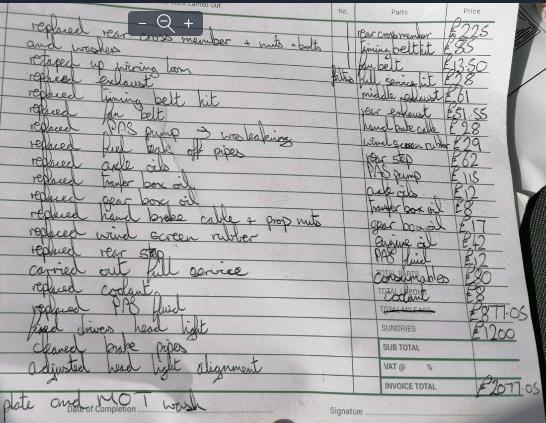 Work Carried Out No. Parts Price
replaced rear cross member + nuts + bolts rear crossmember £225
and washers 1 timing belt kit £85
retaped up wiring loom 1 fan belt £13.50
replaced exhaust full service kit £28
replaced timing belt kit middle exhaust £61
replaced fan belt rear exhaust £51.55
replaced PAS pump → was leaking hand brake cable £28
replaced fuel leak off pipes wind screen rubber £29
replaced axle oils rear step £62
replaced tranfer box oil PAS pump £115
replaced gear box oil axle oils £12
replaced hand brake cable + prop nuts tranfer box oil £8
replaced wind screen rubber gear box oil £17
replaced rear step engine oil £42
carried out full service PAS fluid £12
replaced coolant TOTAL PARTS consumables £20
replaced PAS fluid TOTAL LABOUR coolant £8
fixed drivers head light TOTAL MILEAGE £877.05
cleaned brake pipes SUNDRIES £1200
adjusted head light alignment SUB TOTAL
VAT @ %
INVOICE TOTAL £2077.05
plate and MOT wash
Date of Completion Signature